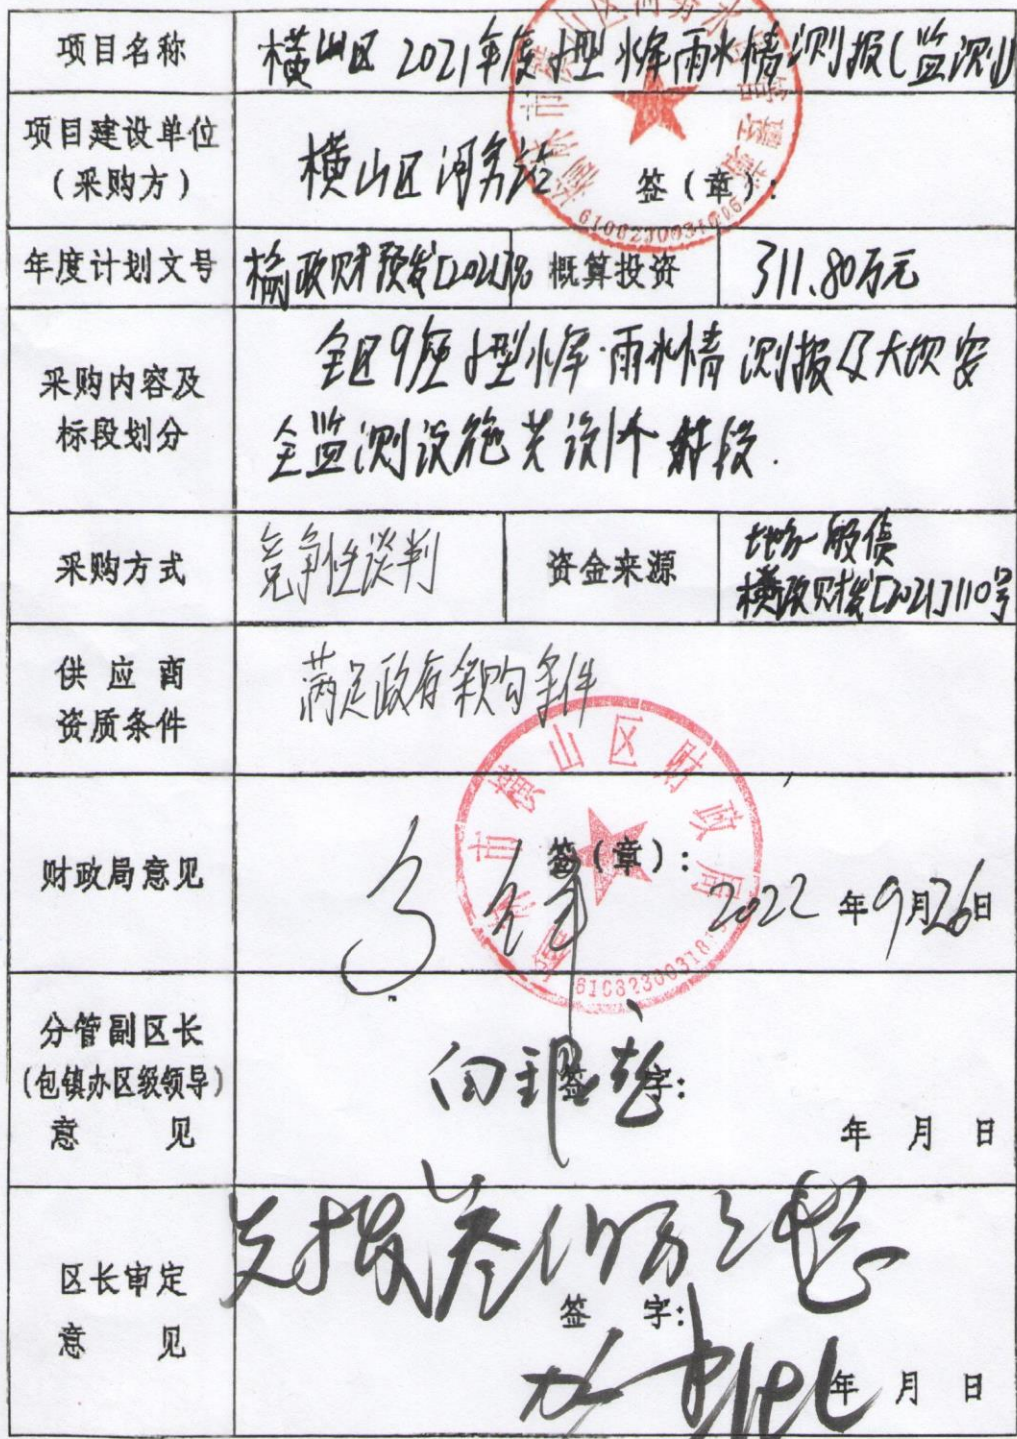 项目名称
横山区2021年度小型水库雨水情测报(监测)
项目建设单位
(采购方)
横山区河务站
签(章):
年度计划文号
榆政财预发[2021]90
概算投资
311.80万元
采购内容及
标段划分
全区9座小型水库雨水情测报及大坝安
全监测设施共设1个标段.
采购方式
竞争性谈判
资金来源
地方一般债
横政财发[2021]110号
供应商
资质条件
满足政府采购条件
财政局意见
签(章):
2022年9月26日
市横山区财政局
分管副区长
(包镇办区级领导)
意见
签字:
年月日
区长审定
意见
签字:
年月日